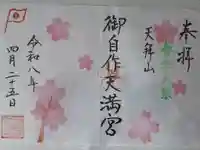 奉拝
天拝山
御自作天満宮
令和八年
四月二十五日